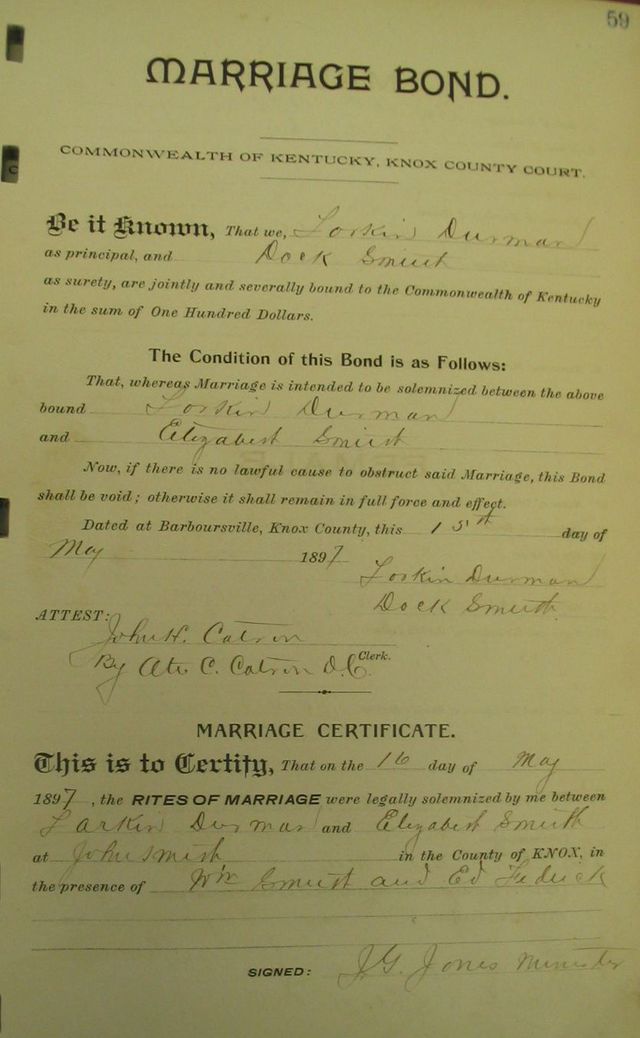 59
MARRIAGE BOND.
COMMONWEALTH OF KENTUCKY, KNOX COUNTY COURT.
Be it Known, That we, Lorkin Durman
as principal, and Dock Smith
as surety, are jointly and severally bound to the Commonwealth of Kentucky
in the sum of One Hundred Dollars.
The Condition of this Bond is as Follows:
That, whereas Marriage is intended to be solemnized between the above
bound Lorkin Durman
and Elizabeth Smith
Now, if there is no lawful cause to obstruct said Marriage, this Bond
shall be void; otherwise it shall remain in full force and effect.
Dated at Barboursville, Knox County, this 15th day of
May 1897
Lorkin Durman
Dock Smith
ATTEST:
John H. Catron
By C. Catron D.C. Clerk.
MARRIAGE CERTIFICATE.
This is to Certify, That on the 16 day of May
1897, the RITES OF MARRIAGE were legally solemnized by me between
Larkin Durman and Elizabeth Smith
at John Smith in the County of KNOX, in
the presence of Wm Smith and Ed
SIGNED: J.G. Jones Minister